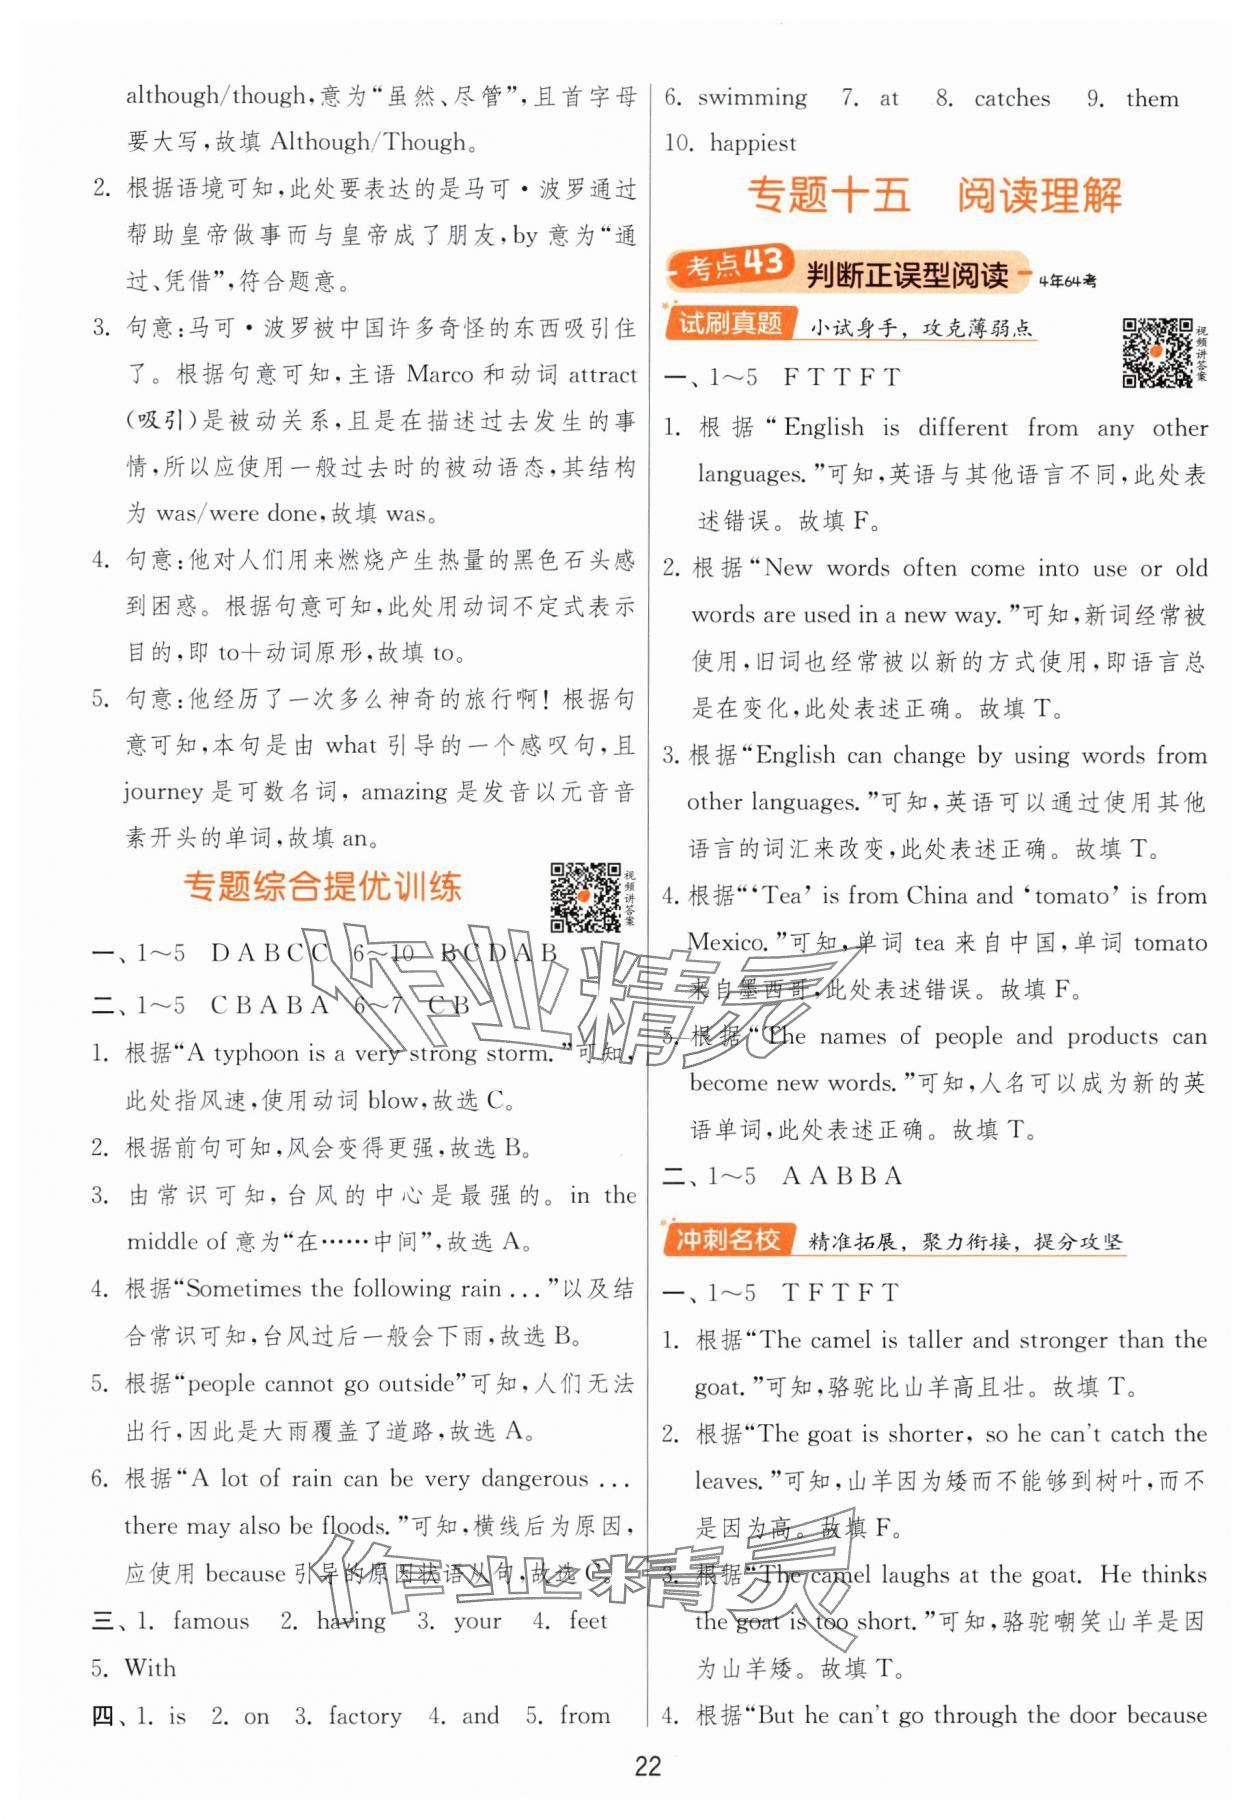 although/though,意为“虽然、尽管”,且首字母
要大写,故填 Although/Though。
2. 根据语境可知,此处要表达的是马可·波罗通过
帮助皇帝做事而与皇帝成了朋友,by 意为“通
过、凭借”,符合题意。
3. 句意:马可·波罗被中国许多奇怪的东西吸引住
了。根据句意可知,主语 Marco 和动词 attract
(吸引)是被动关系,且是在描述过去发生的事
情,所以应使用一般过去时的被动语态,其结构
为 was/were done,故填 was。
4. 句意:他对人们用来燃烧产生热量的黑色石头感
到困惑。根据句意可知,此处用动词不定式表示
目的,即 to+动词原形,故填 to。
5. 句意:他经历了一次多么神奇的旅行啊!根据句
意可知,本句是由 what 引导的一个感叹句,且
journey 是可数名词,amazing 是发音以元音音
素开头的单词,故填 an。
专题综合提优训练
视频讲答案
一、1~5 D A B C C 6~10 B C D A B
二、1~5 C B A B A 6~7 C B
1. 根据“A typhoon is a very strong storm.”可知,
此处指风速,使用动词 blow,故选 C。
2. 根据前句可知,风会变得更强,故选 B。
3. 由常识可知,台风的中心是最强的。in the
middle of 意为“在……中间”,故选 A。
4. 根据“Sometimes the following rain ...”以及结
合常识可知,台风过后一般会下雨,故选 B。
5. 根据“people cannot go outside”可知,人们无法
出行,因此是大雨覆盖了道路,故选 A。
6. 根据“A lot of rain can be very dangerous ...
there may also be floods.”可知,横线后为原因,
应使用 because 引导的原因状语从句,故选 C。
三、1. famous 2. having 3. your 4. feet
5. With
四、1. is 2. on 3. factory 4. and 5. from
6. swimming 7. at 8. catches 9. them
10. happiest
专题十五 阅读理解
考点43 判断正误型阅读 4年64考
试刷真题 小试身手,攻克薄弱点
视频讲答案
一、1~5 F T T F T
1. 根据“English is different from any other
languages.”可知,英语与其他语言不同,此处表
述错误。故填 F。
2. 根据“New words often come into use or old
words are used in a new way.”可知,新词经常被
使用,旧词也经常被以新的方式使用,即语言总
是在变化,此处表述正确。故填 T。
3. 根据“English can change by using words from
other languages.”可知,英语可以通过使用其他
语言的词汇来改变,此处表述正确。故填 T。
4. 根据“‘Tea’ is from China and ‘tomato’ is from
Mexico.”可知,单词 tea 来自中国,单词 tomato
来自墨西哥,此处表述错误。故填 F。
5. 根据“The names of people and products can
become new words.”可知,人名可以成为新的英
语单词,此处表述正确。故填 T。
二、1~5 A A B B A
冲刺名校 精准拓展,聚力衔接,提分攻坚
一、1~5 T F T F T
1. 根据“The camel is taller and stronger than the
goat.”可知,骆驼比山羊高且壮。故填 T。
2. 根据“The goat is shorter, so he can't catch the
leaves.”可知,山羊因为矮而不能够到树叶,而不
是因为高。故填 F。
3. 根据“The camel laughs at the goat. He thinks
the goat is too short.”可知,骆驼嘲笑山羊是因
为山羊矮。故填 T。
4. 根据“But he can't go through the door because
22
作业精灵
作业精灵